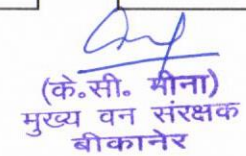 (के०सी० मीना)
मुख्य वन संरक्षक
बीकानेर